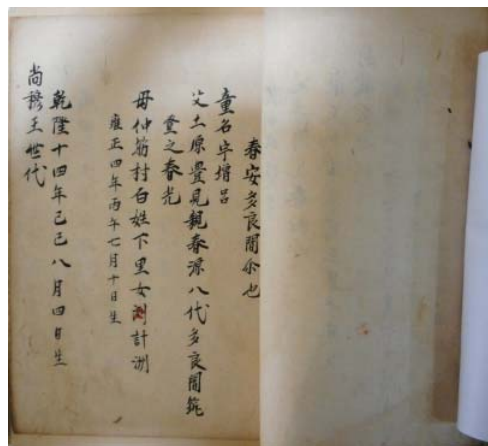 春安多良間尓也
童名增呂
父土原豊見親春源八代多良間筑
登之春光
母仲筋村百姓下里女計洲
雍正四年丙午七月十日生
乾隆十四年己巳八月四日生
尚穆王世代